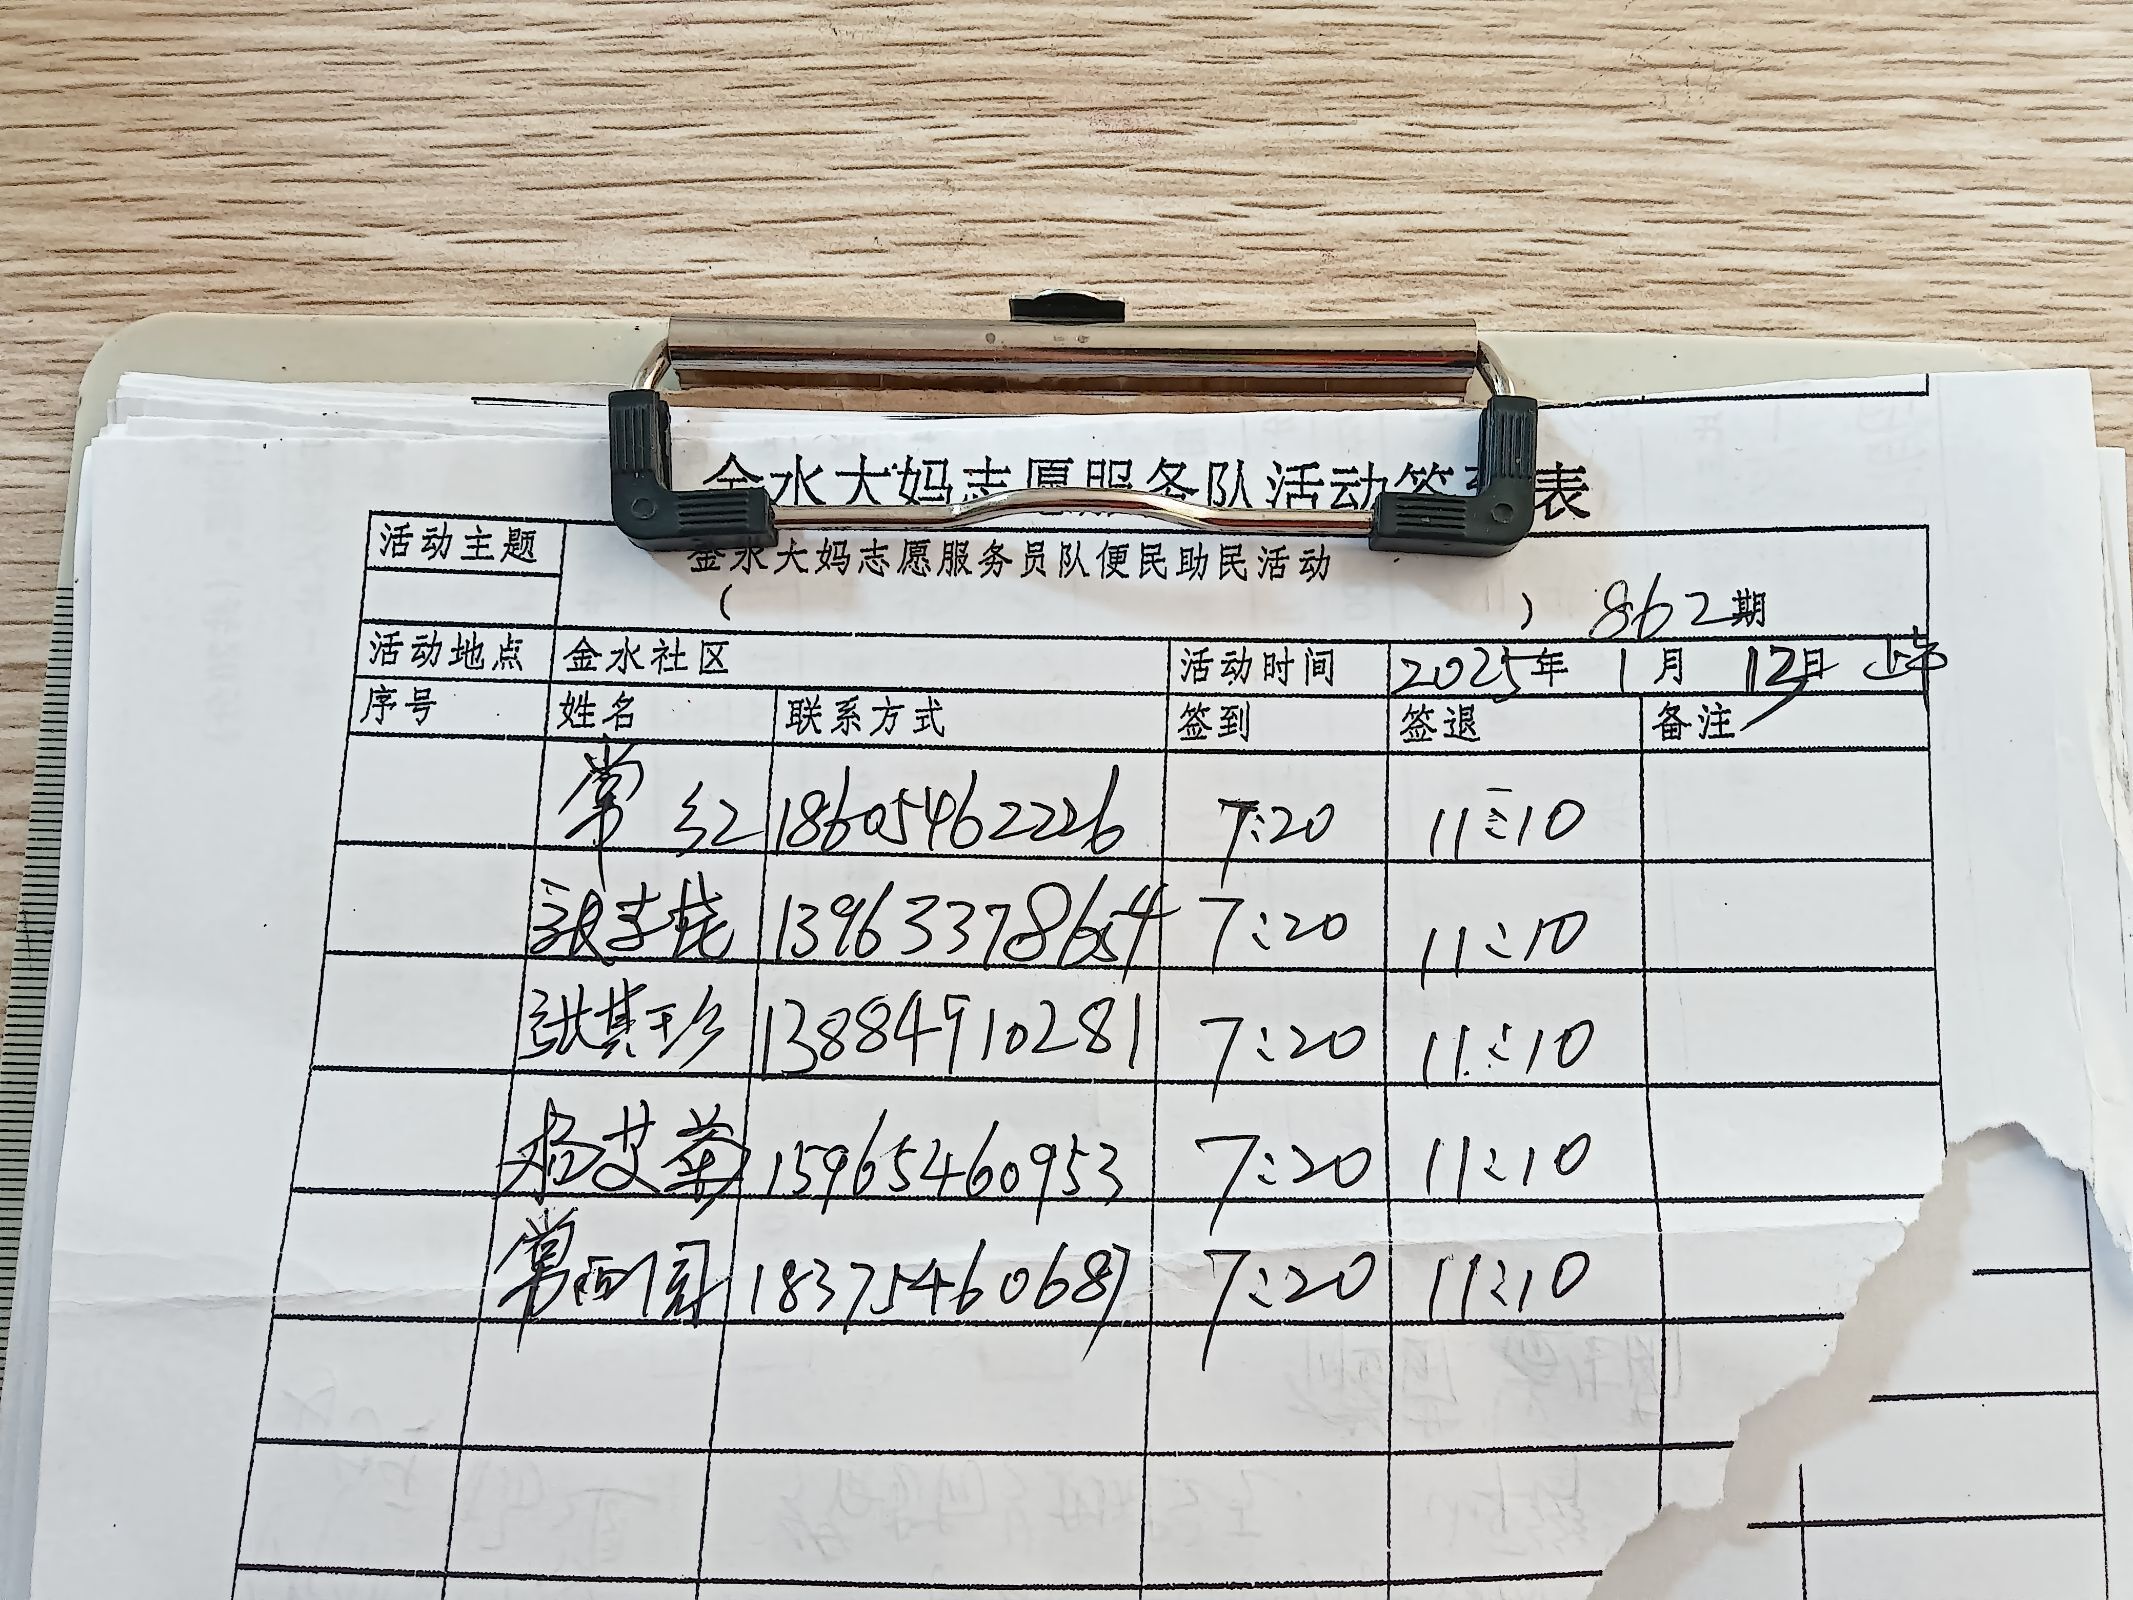 金水大妈志愿服务队活动签到表
活动主题 金水大妈志愿服务员队便民助民活动
( ) 862期
活动地点 金水社区 活动时间 2025年 1月 12日 上午
序号 姓名 联系方式 签到 签退 备注
常红 18605462226 7:20 11:10
张 13963378654 7:20 11:10
张其珍 13884910281 7:20 11:10
杨艾 15965460953 7:20 11:10
常 18375460687 7:20 11:10